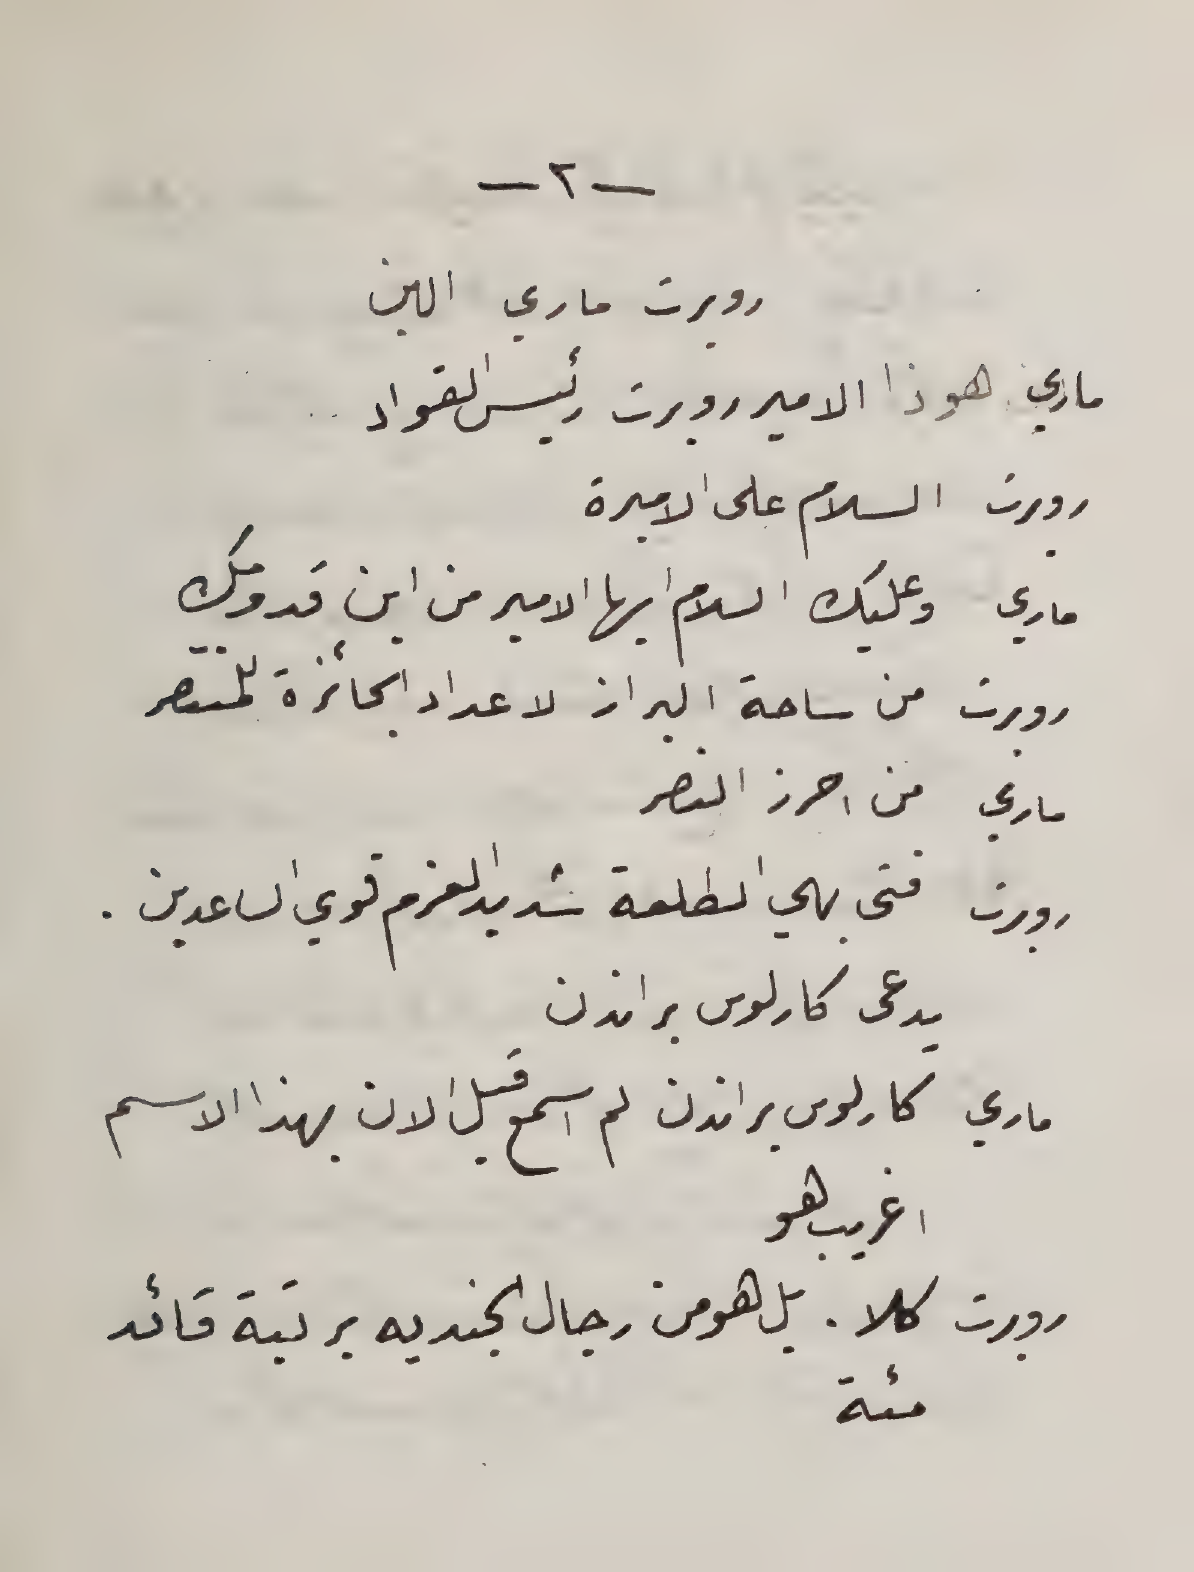 — ٢ —
روبرت ماري الين
ماري هوذا الامير روبرت رئيس القواد
روبرت السلام على الاميرة
ماري وعليك السلام ايها الامير من اين قدومك
روبرت من ساحة البراز لاعداد الجائزة للمنتصر
ماري من احرز النصر
روبرت فتى بهي الطلعة شديد العزم قوي الساعدين .
يدعى كارلوس براندن
ماري كارلوس براندن لم اسمع قبل الان بهذا الاسم
اغريب هو
روبرت كلا . بل هو من رجال الجنديه برتبة قائد
مئة